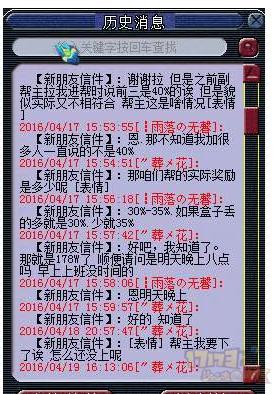 历史消息
关键字按回车查找
【新朋友信件】：谢谢拉 但是之前副
帮主拉我进帮时说前三是40%的诶 但是貌
似实际又不相符合 帮主这是啥情况[表情
]
2016/04/17 15:53:55[┊雨落の无馨]:
【新朋友信件】：恩.那不知道我加很
多人一直说的不是40%
2016/04/17 15:54:51[〞葬メ花]:
【新朋友信件】：那咱们帮的实际奖励
是多少呢 [表情]
2016/04/17 15:56:18[┊雨落の无馨]:
【新朋友信件】：30%-35%.如果盒子丢
的多就是30%.少就35%
2016/04/17 15:57:42[〞葬メ花]:
【新朋友信件】：好吧，我知道了。
那就是178W了 顺便请问是明天晚上八点
吗 早上上班没时间的
2016/04/17 15:58:31[┊雨落の无馨]:
【新朋友信件】：恩明天晚上
2016/04/17 15:59:57[〞葬メ花]:
【新朋友信件】：好的 知道了
2016/04/18 20:57:47[〞葬メ花]:
【新朋友信件】：[表情] 帮主我要下
了诶 怎么还没上呢
2016/04/19 16:13:06[〞葬メ花]: